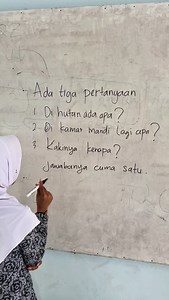 Ada tiga pertanyaan
1. Di hutan ada apa?
2. Di kamar mandi lagi apa?
3. Kakinya kenapa?
jawabanya cuma satu